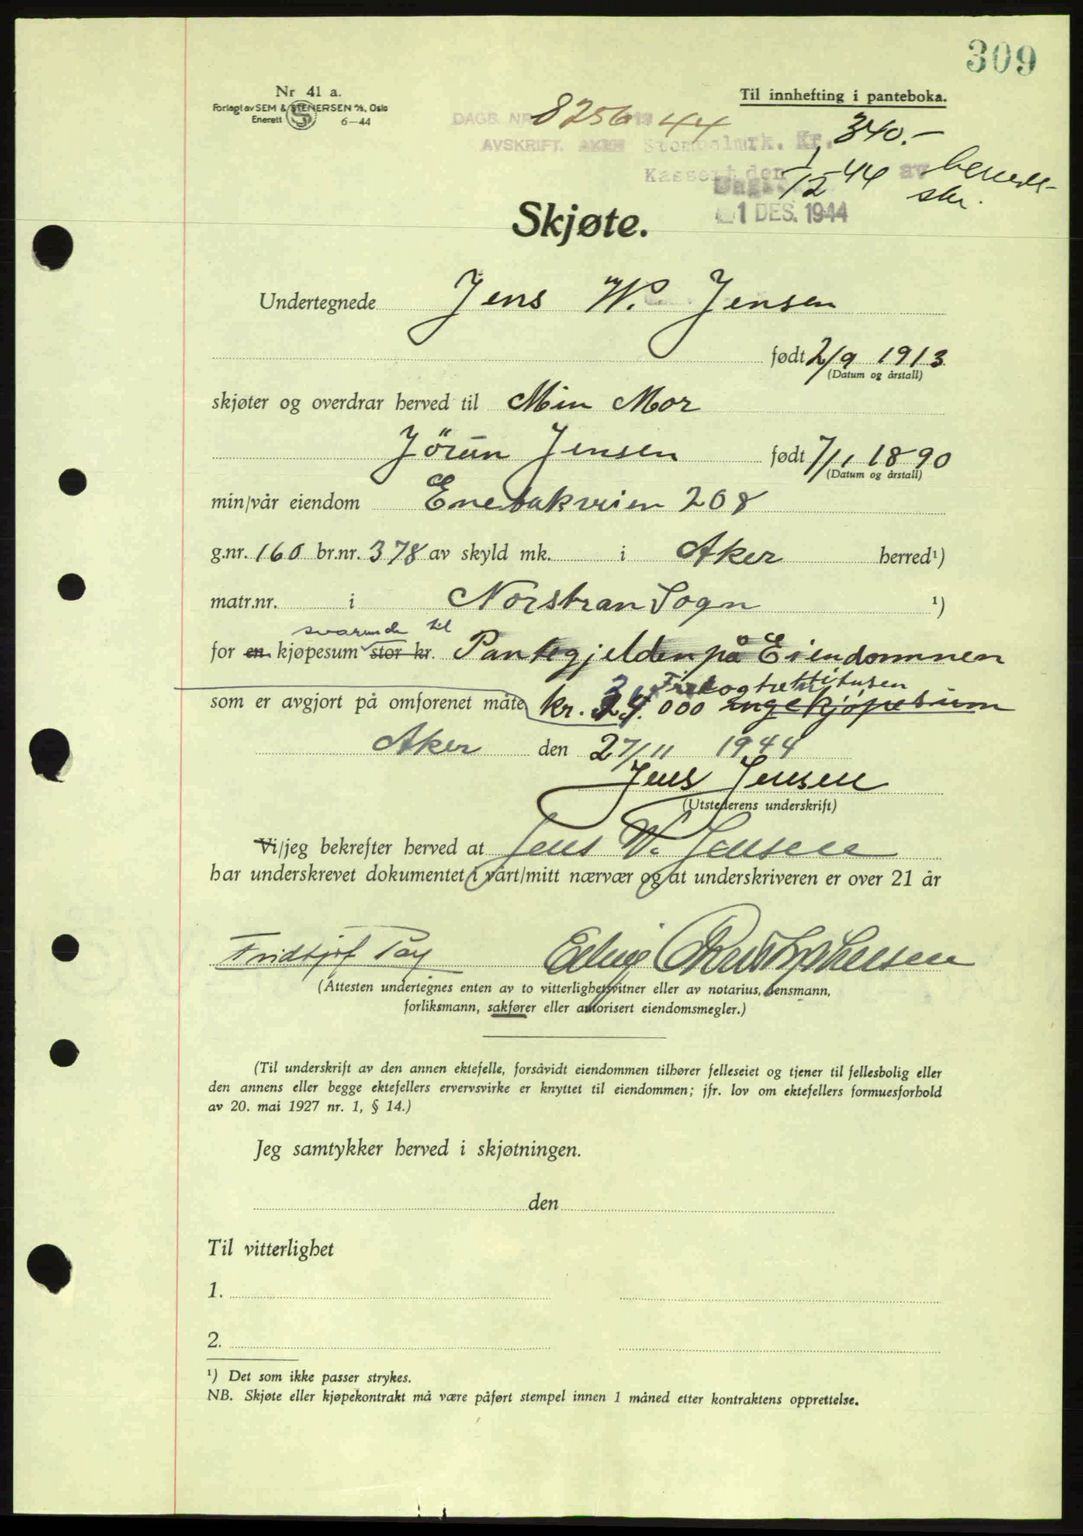 309
Nr 41 a.
Forlagt av SEM & STENERSEN A/S, Oslo
Enerett 6-44
Til innhefting i panteboka.
DAGB. NR. 8256 1944
AVSKRIFT. AKER
Stempelmrk. Kr. 340.-
Kassert den 1/12 44 av
1 DES. 1944
Skjøte.
Undertegnede Jens W. Jensen
født 2/9 1913
(Datum og årstall)
skjøter og overdrar herved til Min Mor
Jörun Jensen født 7/1 1890
(Datum og årstall)
min/vår eiendom Enebakveien 208
g.nr. 160 br.nr. 378 av skyld mk. i Aker herred¹)
matr.nr. i Norstran Sogn ¹)
svarende til
for en kjøpesum stor kr. Pantegjelden på Eiendomnen
som er avgjort på omforenet måte kr. 34.000 ingen kjøpesum
Aker den 27/11 1944
Jens Jensen
(Utstederens underskrift)
Vi/jeg bekrefter herved at Jens W. Jensen
har underskrevet dokumentet i vårt/mitt nærvær og at underskriveren er over 21 år
Fridtjof
(Attesten undertegnes enten av to vitterlighetsvitner eller av notarius, lensmann,
forliksmann, sakfører eller autorisert eiendomsmegler.)
(Til underskrift av den annen ektefelle, forsåvidt eiendommen tilhører felleseiet og tjener til fellesbolig eller
den annens eller begge ektefellers ervervsvirke er knyttet til eiendommen; jfr. lov om ektefellers formuesforhold
av 20. mai 1927 nr. 1, § 14.)
Jeg samtykker herved i skjøtningen.
den
Til vitterlighet
1.
2.
¹) Det som ikke passer strykes.
NB. Skjøte eller kjøpekontrakt må være påført stempel innen 1 måned etter kontraktens opprettelse.